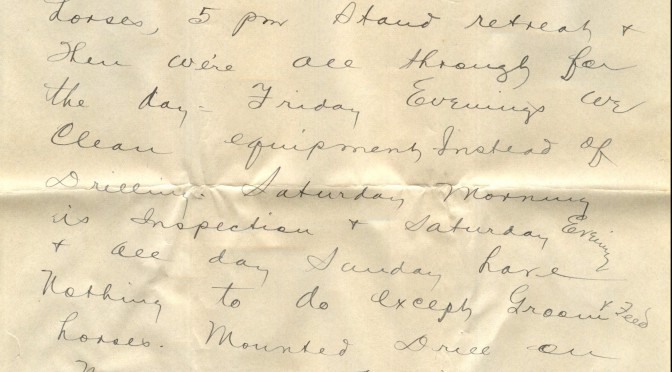 horses, 5 pm Stand retreat +
Then we're all through for
the day - Friday Evenings we
Clean equipment Instead of
Drilling. Saturday Morning
is Inspection + Saturday Evening
+ all day Sunday have
Nothing to do except Groom + Feed
horses. Mounted Drill on